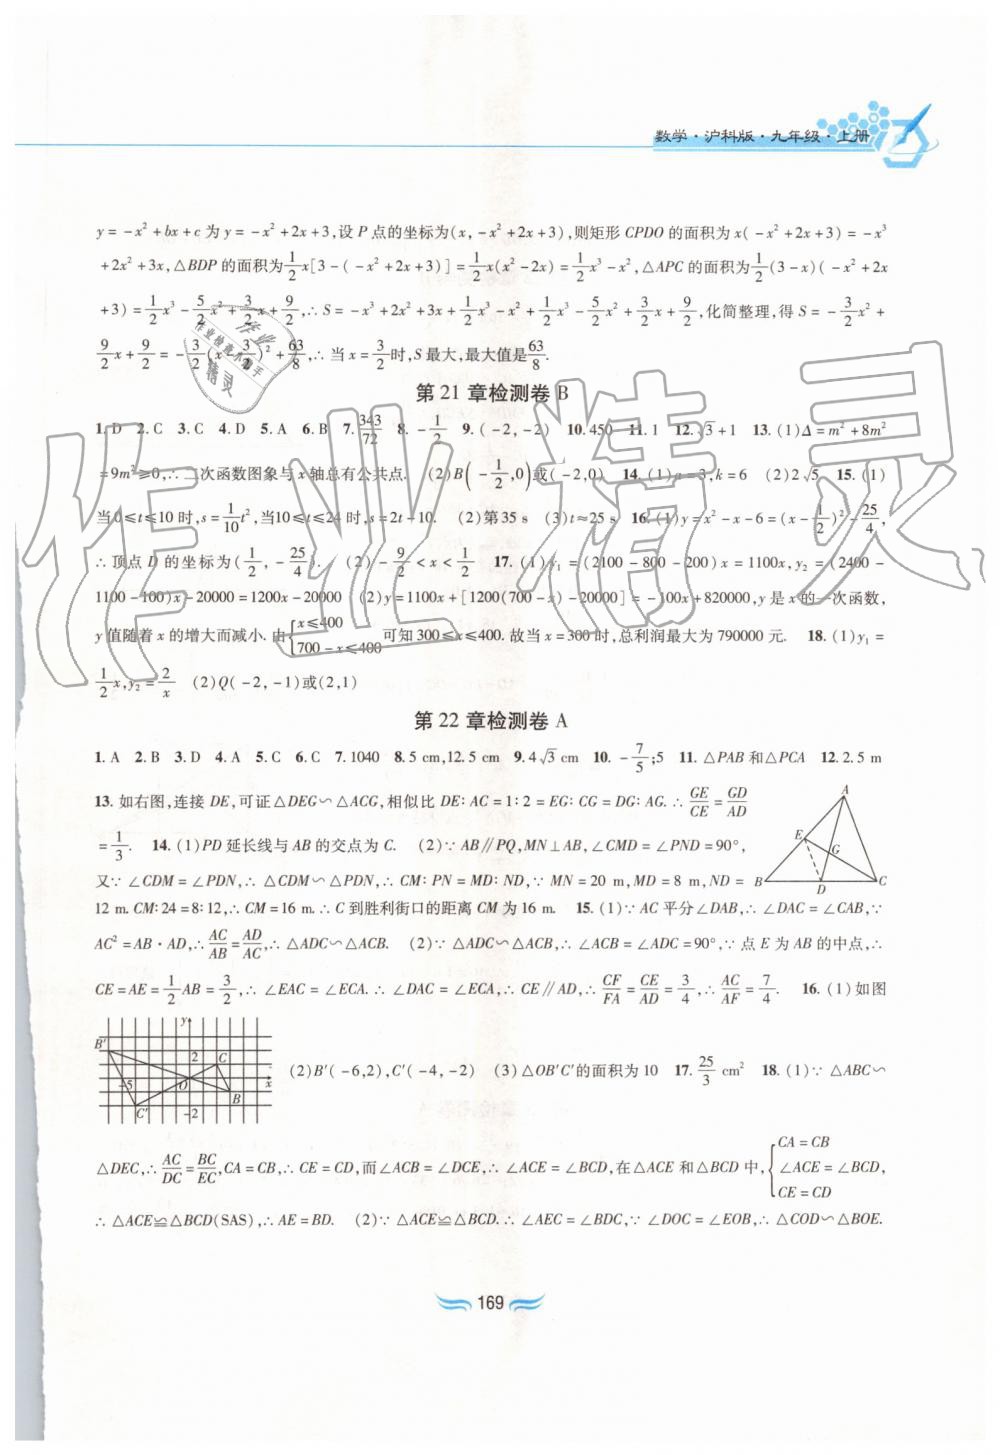 数学·沪科版·九年级·上册
y=-x²+bx+c为y=-x²+2x+3,设P点的坐标为(x,-x²+2x+3),则矩形CPDO的面积为x(-x²+2x+3)=-x³
+2x²+3x,△BDP的面积为1/2x[3-(-x²+2x+3)]=1/2x(x²-2x)=1/2x³-x²,△APC的面积为1/2(3-x)(-x²+2x
+3)=1/2x³-5/2x²+3/2x+9/2,∴S=-x³+2x²+3x+1/2x³-x²+1/2x³-5/2x²+3/2x+9/2,化简整理,得S=-3/2x²+
9/2x+9/2=-3/2(x-3/2)²+63/8,∴当x=3/2时,S最大,最大值是63/8.
第21章检测卷B
1.D 2.C 3.C 4.D 5.A 6.B 7.343/72 8.-1/2 9.(-2,-2) 10.450 11.1 12.√3+1 13.(1)Δ=m²+8m²
=9m²≥0,∴二次函数图象与x轴总有公共点. (2)B(-1/2,0)或(-2,0) 14.(1)a=3,k=6 (2)2√5 15.(1)
当0≤t≤10时,s=1/10t²,当10≤t≤24时,s=2t-10. (2)第35 s (3)t≈25 s 16.(1)y=x²-x-6=(x-1/2)²-25/4,
∴顶点D的坐标为(1/2,-25/4). (2)-9/2<x<1/2 17.(1)y₁=(2100-800-200)x=1100x,y₂=(2400-
1100-100)x-20000=1200x-20000 (2)y=1100x+[1200(700-x)-20000]=-100x+820000,y是x的一次函数,
y值随着x的增大而减小.由{x≤400 700-x≤400 可知300≤x≤400.故当x=300时,总利润最大为790000元. 18.(1)y₁=
1/2x,y₂=2/x (2)Q(-2,-1)或(2,1)
第22章检测卷A
1.A 2.B 3.D 4.A 5.C 6.C 7.1040 8.5 cm,12.5 cm 9.4√3 cm 10.-7/5;5 11.△PAB和△PCA 12.2.5 m
13.如右图,连接DE,可证△DEG∽△ACG,相似比DE:AC=1:2=EG:CG=DG:AG.∴GE/CE=GD/AD
=1/3. 14.(1)PD延长线与AB的交点为C. (2)∵AB∥PQ,MN⊥AB,∠CMD=∠PND=90°,
又∵∠CDM=∠PDN,∴△CDM∽△PDN,∴CM:PN=MD:ND,∵MN=20 m,MD=8 m,ND=
A
E
G
B
D
C
12 m.CM:24=8:12,∴CM=16 m.∴C到胜利街口的距离CM为16 m. 15.(1)∵AC平分∠DAB,∴∠DAC=∠CAB,∵
AC²=AB·AD,∴AC/AB=AD/AC,∴△ADC∽△ACB. (2)∵△ADC∽△ACB,∴∠ACB=∠ADC=90°,∵点E为AB的中点,∴
CE=AE=1/2AB=3/2,∴∠EAC=∠ECA.∴∠DAC=∠ECA,∴CE∥AD,∴CF/FA=CE/AD=3/4,∴AC/AF=7/4. 16.(1)如图
y
B′
2
C
-5
O
x
B
C′
-2
(2)B′(-6,2),C′(-4,-2) (3)△OB′C′的面积为10 17.25/3 cm² 18.(1)∵△ABC∽
△DEC,∴AC/DC=BC/EC,CA=CB,∴CE=CD,而∠ACB=∠DCE,∴∠ACE=∠BCD,在△ACE和△BCD中,{CA=CB ∠ACE=∠BCD, CE=CD
∴△ACE≌△BCD(SAS),∴AE=BD. (2)∵△ACE≌△BCD.∴∠AEC=∠BDC,∵∠DOC=∠EOB,∴△COD∽△BOE.
169
作业精灵